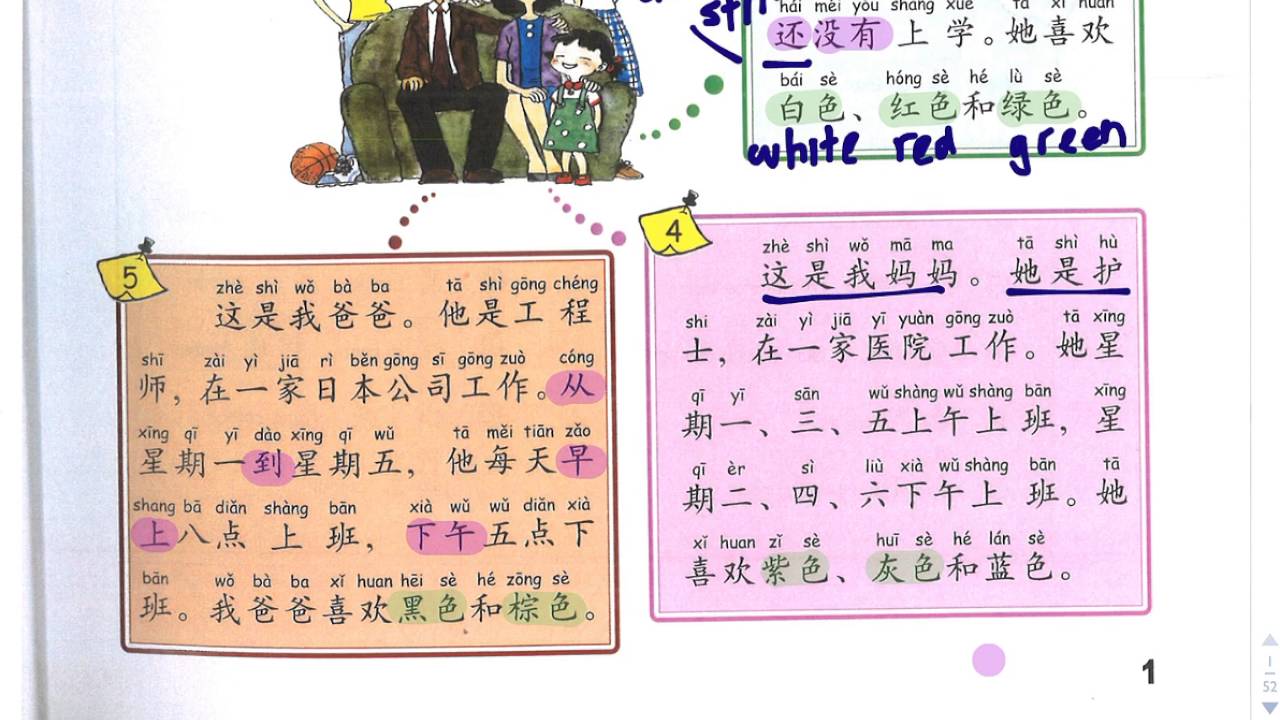 hái méi yǒu shàng xué tā xǐ huan
还没有上学。她喜欢
bái sè hóng sè hé lǜ sè
白色、红色和绿色。
white red green
4
zhè shì wǒ mā ma tā shì hù
这是我妈妈。她是护
shi zài yì jiā yī yuàn gōng zuò tā xīng
士，在一家医院工作。她星
qī yī sān wǔ shàng wǔ shàng bān xīng
期一、三、五上午上班，星
qī èr sì liù xià wǔ shàng bān tā
期二、四、六下午上班。她
xǐ huan zǐ sè huī sè hé lán sè
喜欢紫色、灰色和蓝色。
5
zhè shì wǒ bà ba tā shì gōng chéng
这是我爸爸。他是工程
shī zài yì jiā rì běn gōng sī gōng zuò cóng
师，在一家日本公司工作。从
xīng qī yī dào xīng qī wǔ tā měi tiān zǎo
星期一到星期五，他每天早
shang bā diǎn shàng bān xià wǔ wǔ diǎn xià
上八点上班，下午五点下
bān wǒ bà ba xǐ huan hēi sè hé zōng sè
班。我爸爸喜欢黑色和棕色。
1
1
52